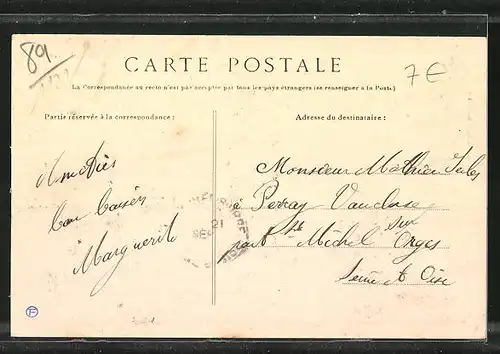 89
CARTE POSTALE
7€
La Correspondance au recto n'est pas acceptée par tous les pays étrangers (se renseigner à la Poste.)
Partie réservée à la correspondance :
Adresse du destinataire :
Amitiés
bon baisers
Marguerite
Monsieur Mathieu Jules
à Perray Vaucluse
par Ste Michel sur Orges
Seine et Oise
21
SE
F